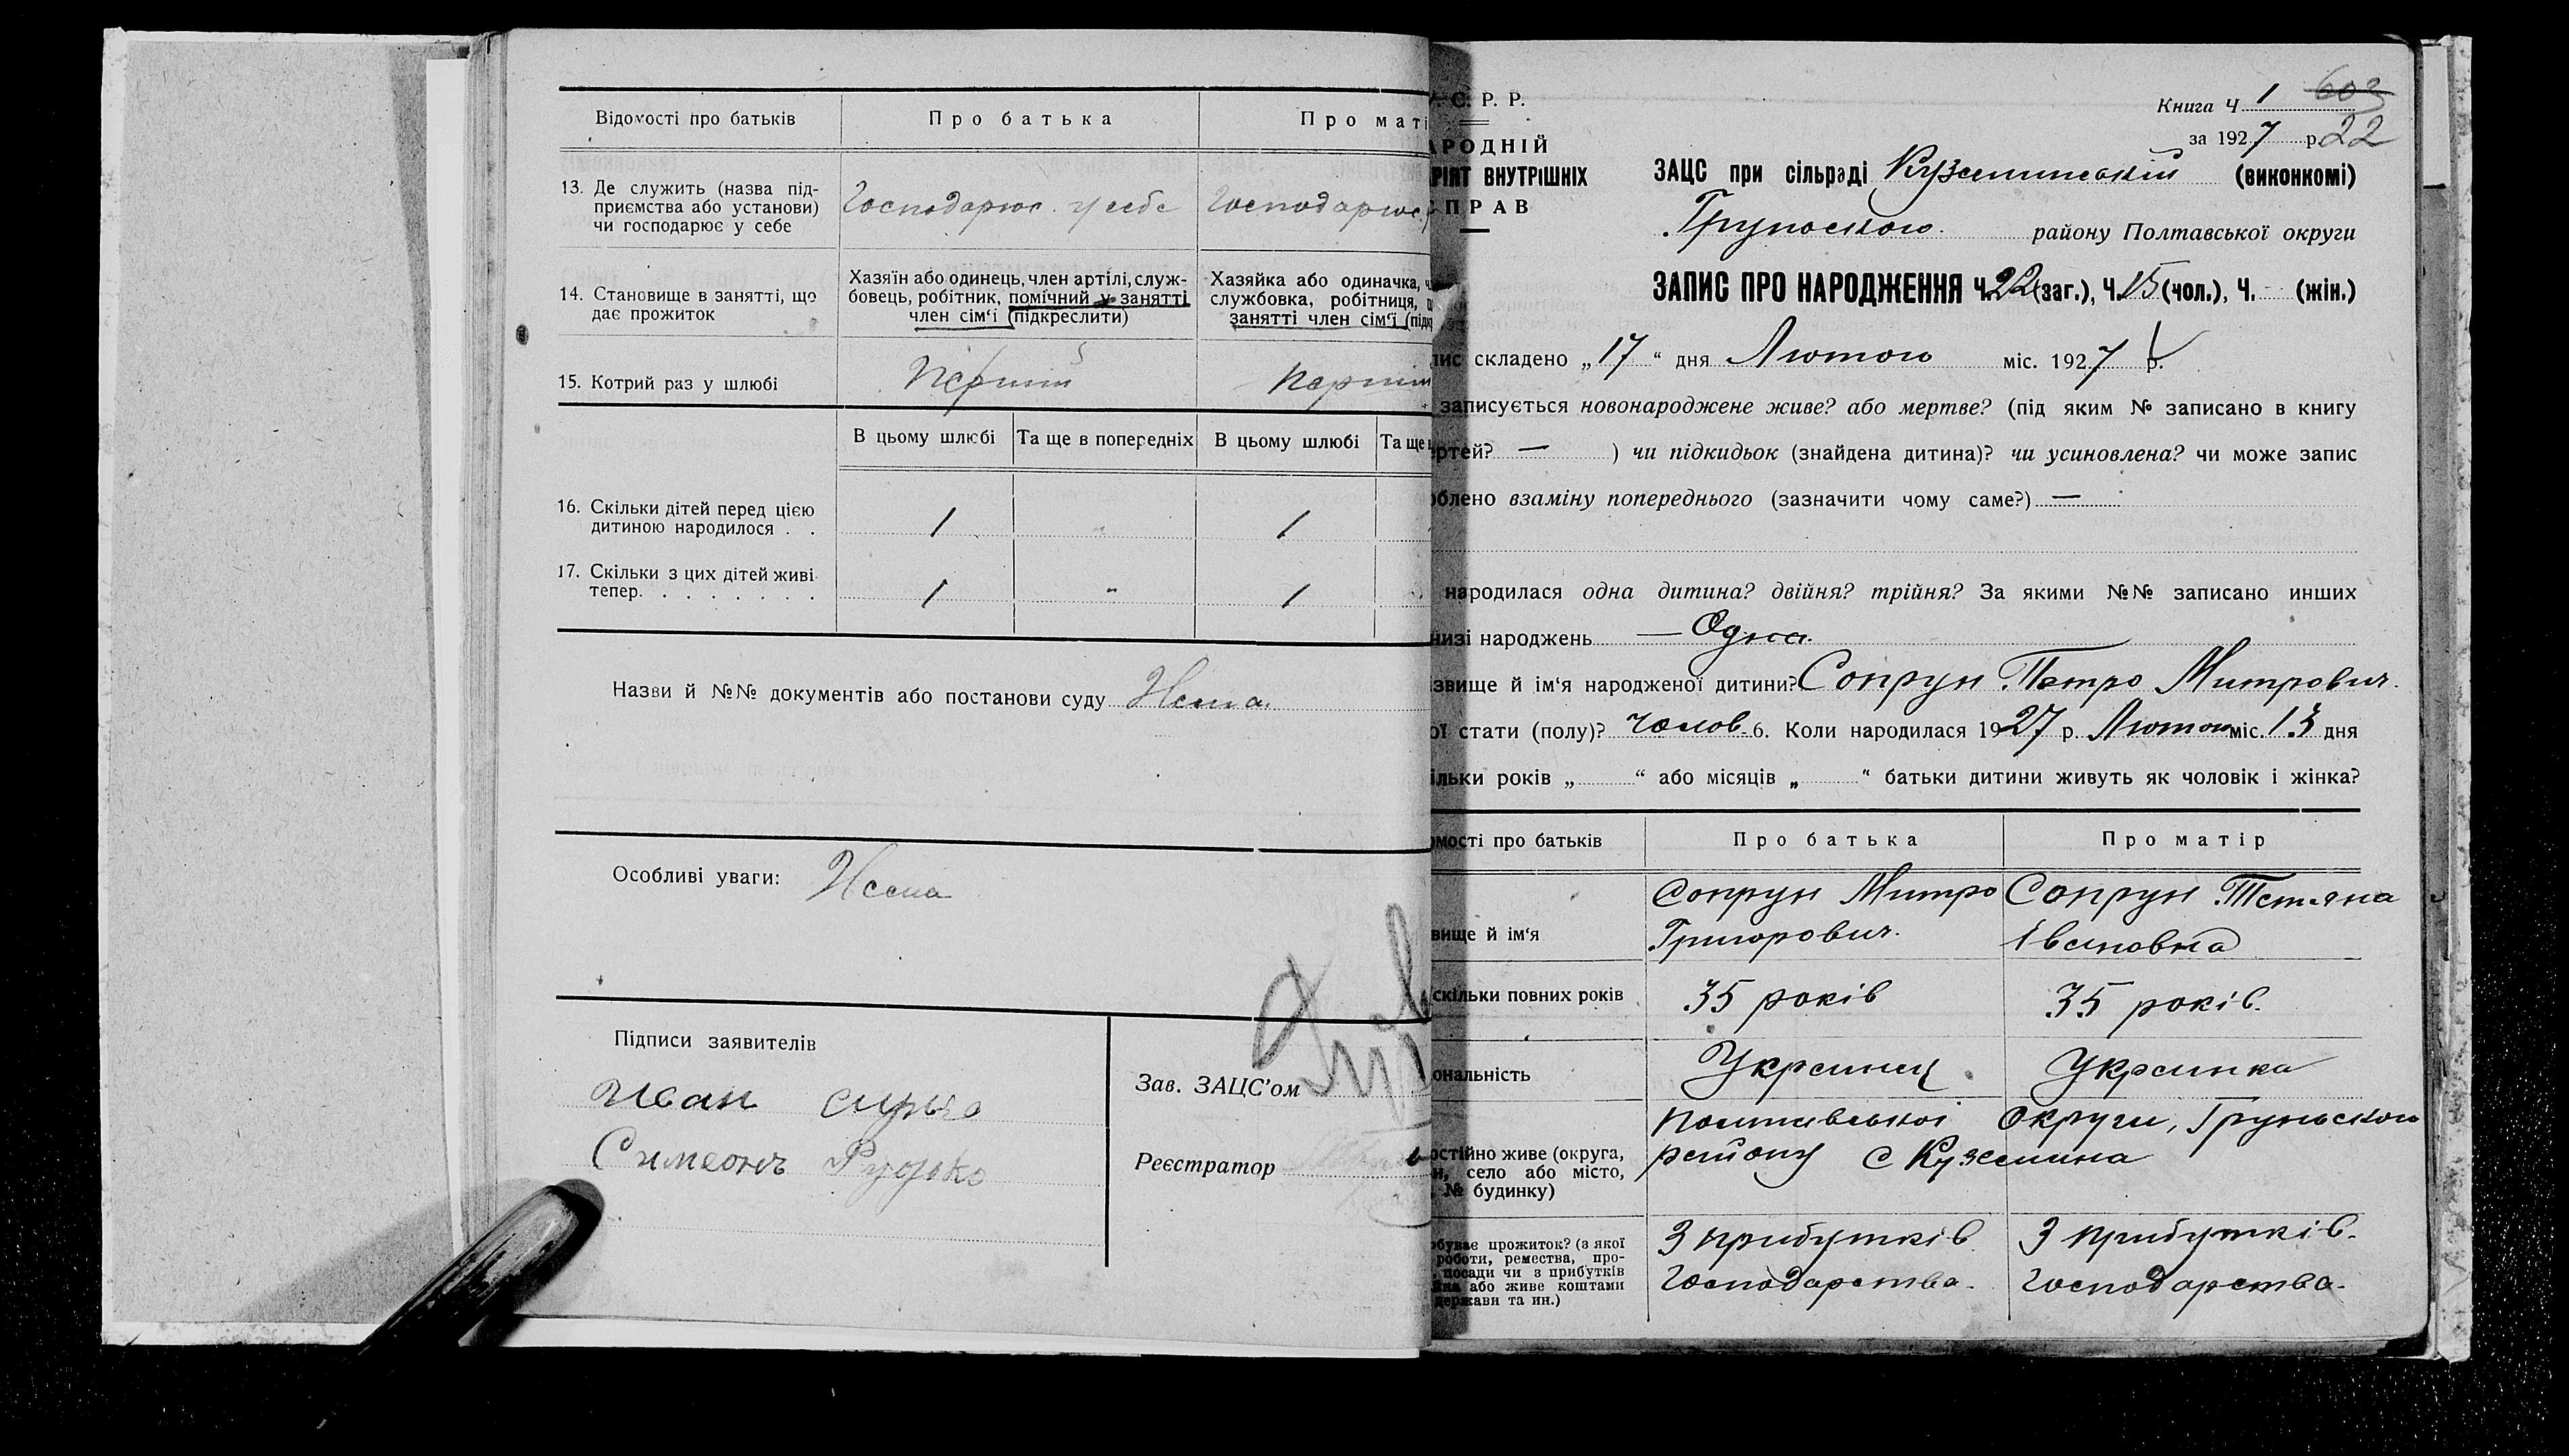 Відомості про батьків
Про батька
Про маті
13. Де служить (назва під-
приємства або установи)
чи господарює у себе
Господарює у себе
Господарює
14. Становище в занятті, що
дає прожиток
Хазяїн або одинець, член артілі, служ-
бовець, робітник, помічний у занятті
член сім‘ї (підкреслити)
Хазяйка або одиначка, ч
службовка, робітниця, п
занятті член сім‘ї (підк
15. Котрий раз у шлюбі
Перший
Перший
В цьому шлюбі
Та ще в попередніх
В цьому шлюбі
Та ще в
16. Скільки дітей перед цією
дитиною народилося . .
1
1
17. Скільки з цих дітей живі
тепер. . . . . . . .
1
1
Назви й №№ документів або постанови суду Нема.
Особливі уваги: Нема
Підписи заявителів
Иван
Симеонъ
Зав. ЗАЦС’ом
Реєстратор
С. Р. Р.
АРОДНІЙ
РІЯТ ВНУТРІШНІХ
ПРАВ
Книга Ч 1 603
за 1927 р. 22
ЗАЦС при сільраді Куземинській (виконкомі)
Груньского району Полтавської округи
ЗАПИС ПРО НАРОДЖЕННЯ Ч. 22 (заг.), Ч. 15 (чол.), Ч. - (жін.)
пис складено „17“ дня Лютого міс. 1927 р.
записується новонароджене живе? або мертве? (під яким № записано в книгу
ртей? — ) чи підкидьок (знайдена дитина)? чи усиновлена? чи може запис
облено взаміну попереднього (зазначити чому саме?) —
народилася одна дитина? двійня? трійня? За якими №№ записано инших
низі народжень — Одна.
звище й ім‘я народженої дитини? Сопрун Петро Митрович.
ої стати (полу)? чолов. 6. Коли народилася 1927 р. Лютого міс. 13 дня
ільки років „ “ або місяців „ “ батьки дитини живуть як чоловік і жінка?
омості про батьків
Про батька
Про матір
вище й ім‘я
Сопрун Митро
Григорович.
Сопрун Тетяна
Івановна
скільки повних років
35 років
35 років.
ональність
Украинец.
Украинка
остійно живе (округа,
н, село або місто,
№ будинку)
Полтавської Округи, Груньского
району с Куземина
обуває прожиток? (з якої
роботи, ремества, про-
посади чи з прибутків
йна або живе коштами
держави та ин.)
З прибутків
Господарства.
З прибутків.
Господарства.